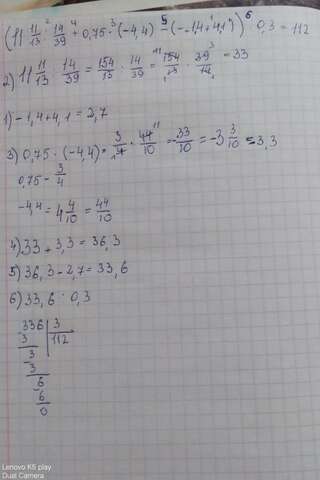 (11 11/13 : 14/39 + 0,75 · (-4,4) - (-1,4+4,1)) : 0,3 = 112
2) 11 11/13 : 14/39 = 154/13 : 14/39 = 154/13 · 39/14 = 33
1) -1,4+4,1 = 2,7
3) 0,75 · (-4,4) = 3/4 · 44/10 = 33/10 = -3 3/10 = 3,3
0,75 - 3/4
-4,4 = 4 4/10 = 44/10
4) 33 + 3,3 = 36,3
5) 36,3 - 2,7 = 33,6
6) 33,6 : 0,3
336 | 3
3 112
3
3
6
6
0
Lenovo K5 play
Dual Camera